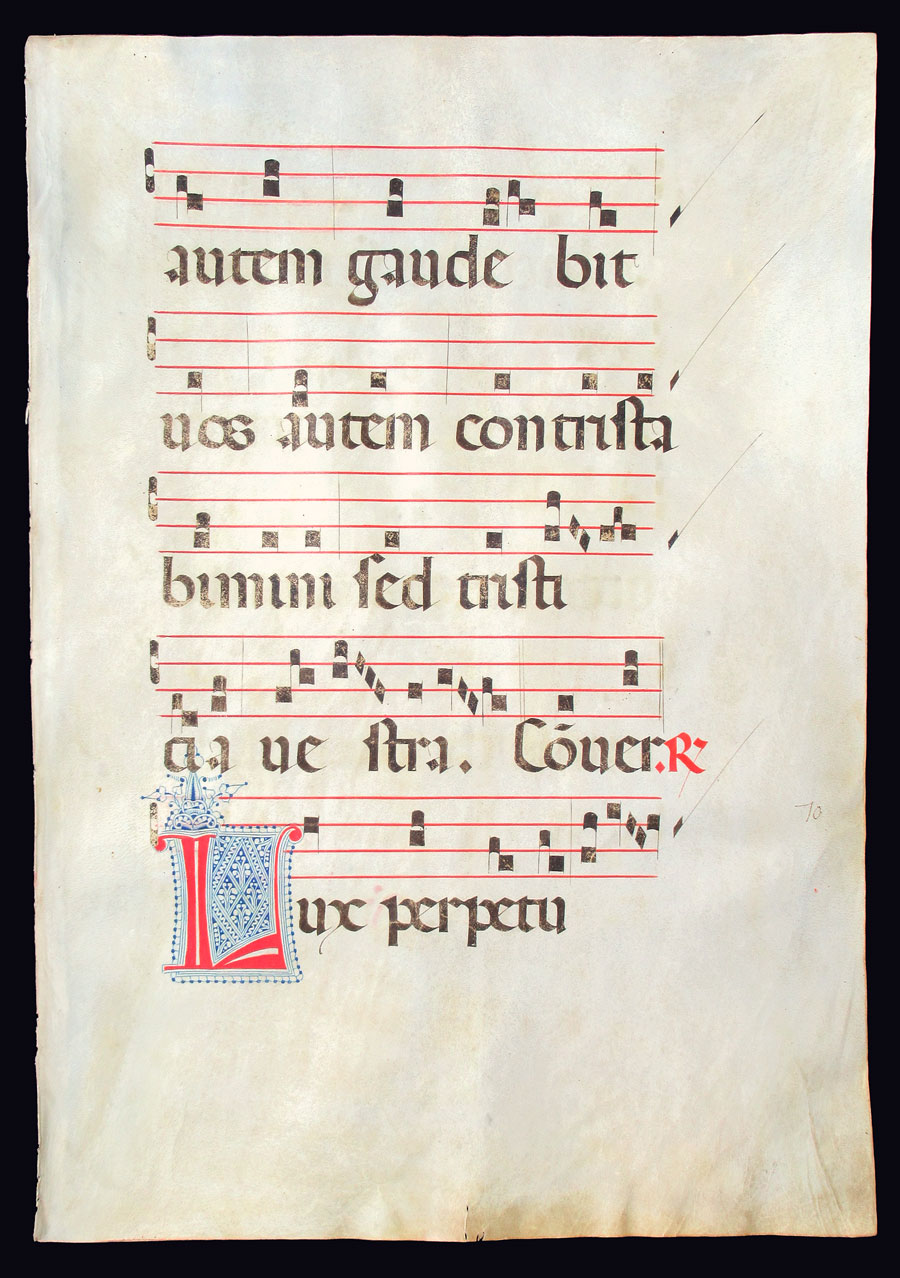 autem gaude bit
uos autem contrista
bimini sed tristi
cia ue stra. Cõuer. R
Lux perpetu
70